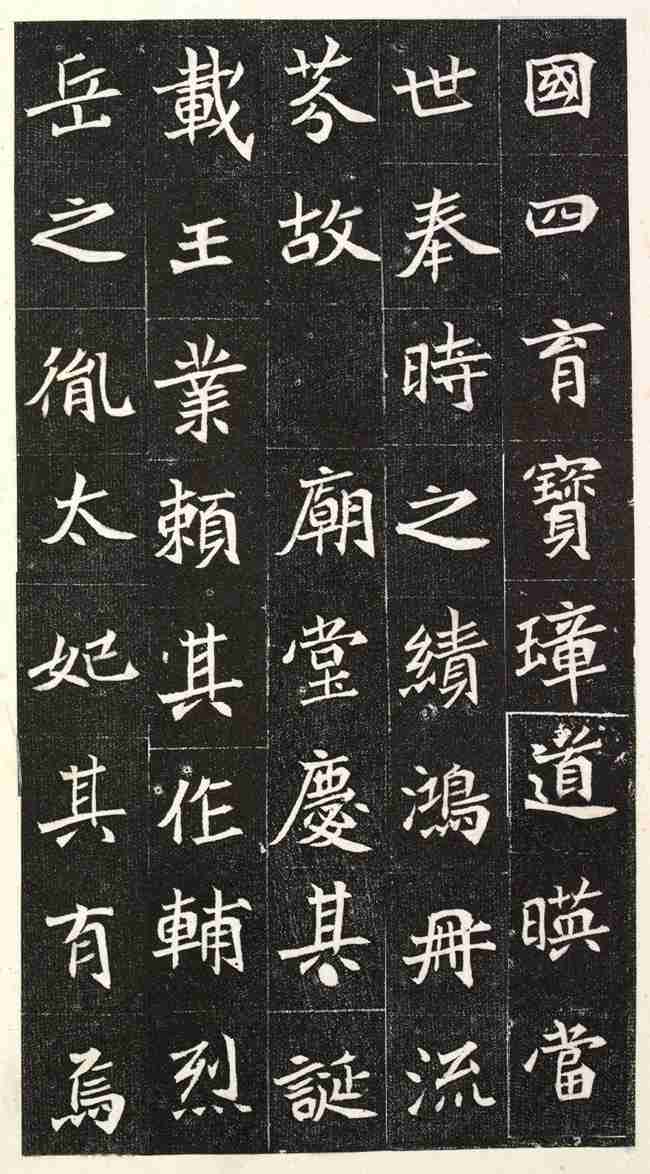 國四育寶璋道暎當
世奉時之績鴻冊流
芬故廟堂慶其誕
載王業賴其作輔烈
岳之胤太妃其有焉